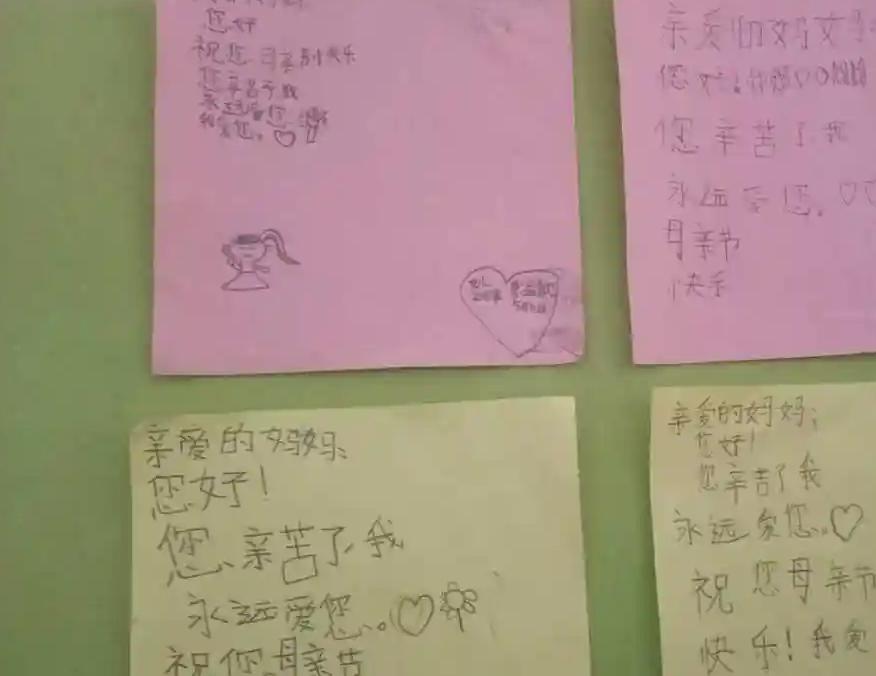 您好
祝您母亲别快乐
您辛苦了我
永远爱您
我爱您。
亲爱的妈妈
您好!
您辛苦了我
永远爱您。
母亲节
快乐
亲爱的妈妈:
您好!
您亲苦了我
永远爱您。
祝您母亲节
亲爱的妈妈:
您好!
您辛苦了我
永远爱您。
祝您母亲节
快乐!我爱